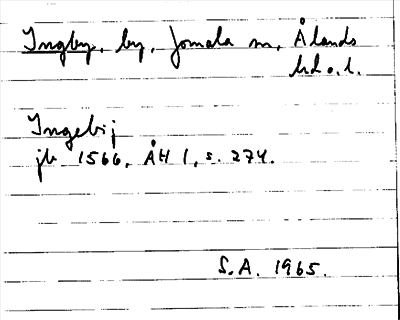 Ingby, by, Jomala sn, Ålands
hd o. l.
Ingebij
jb 1566, ÅH 1, s. 274.
S.A. 1965.